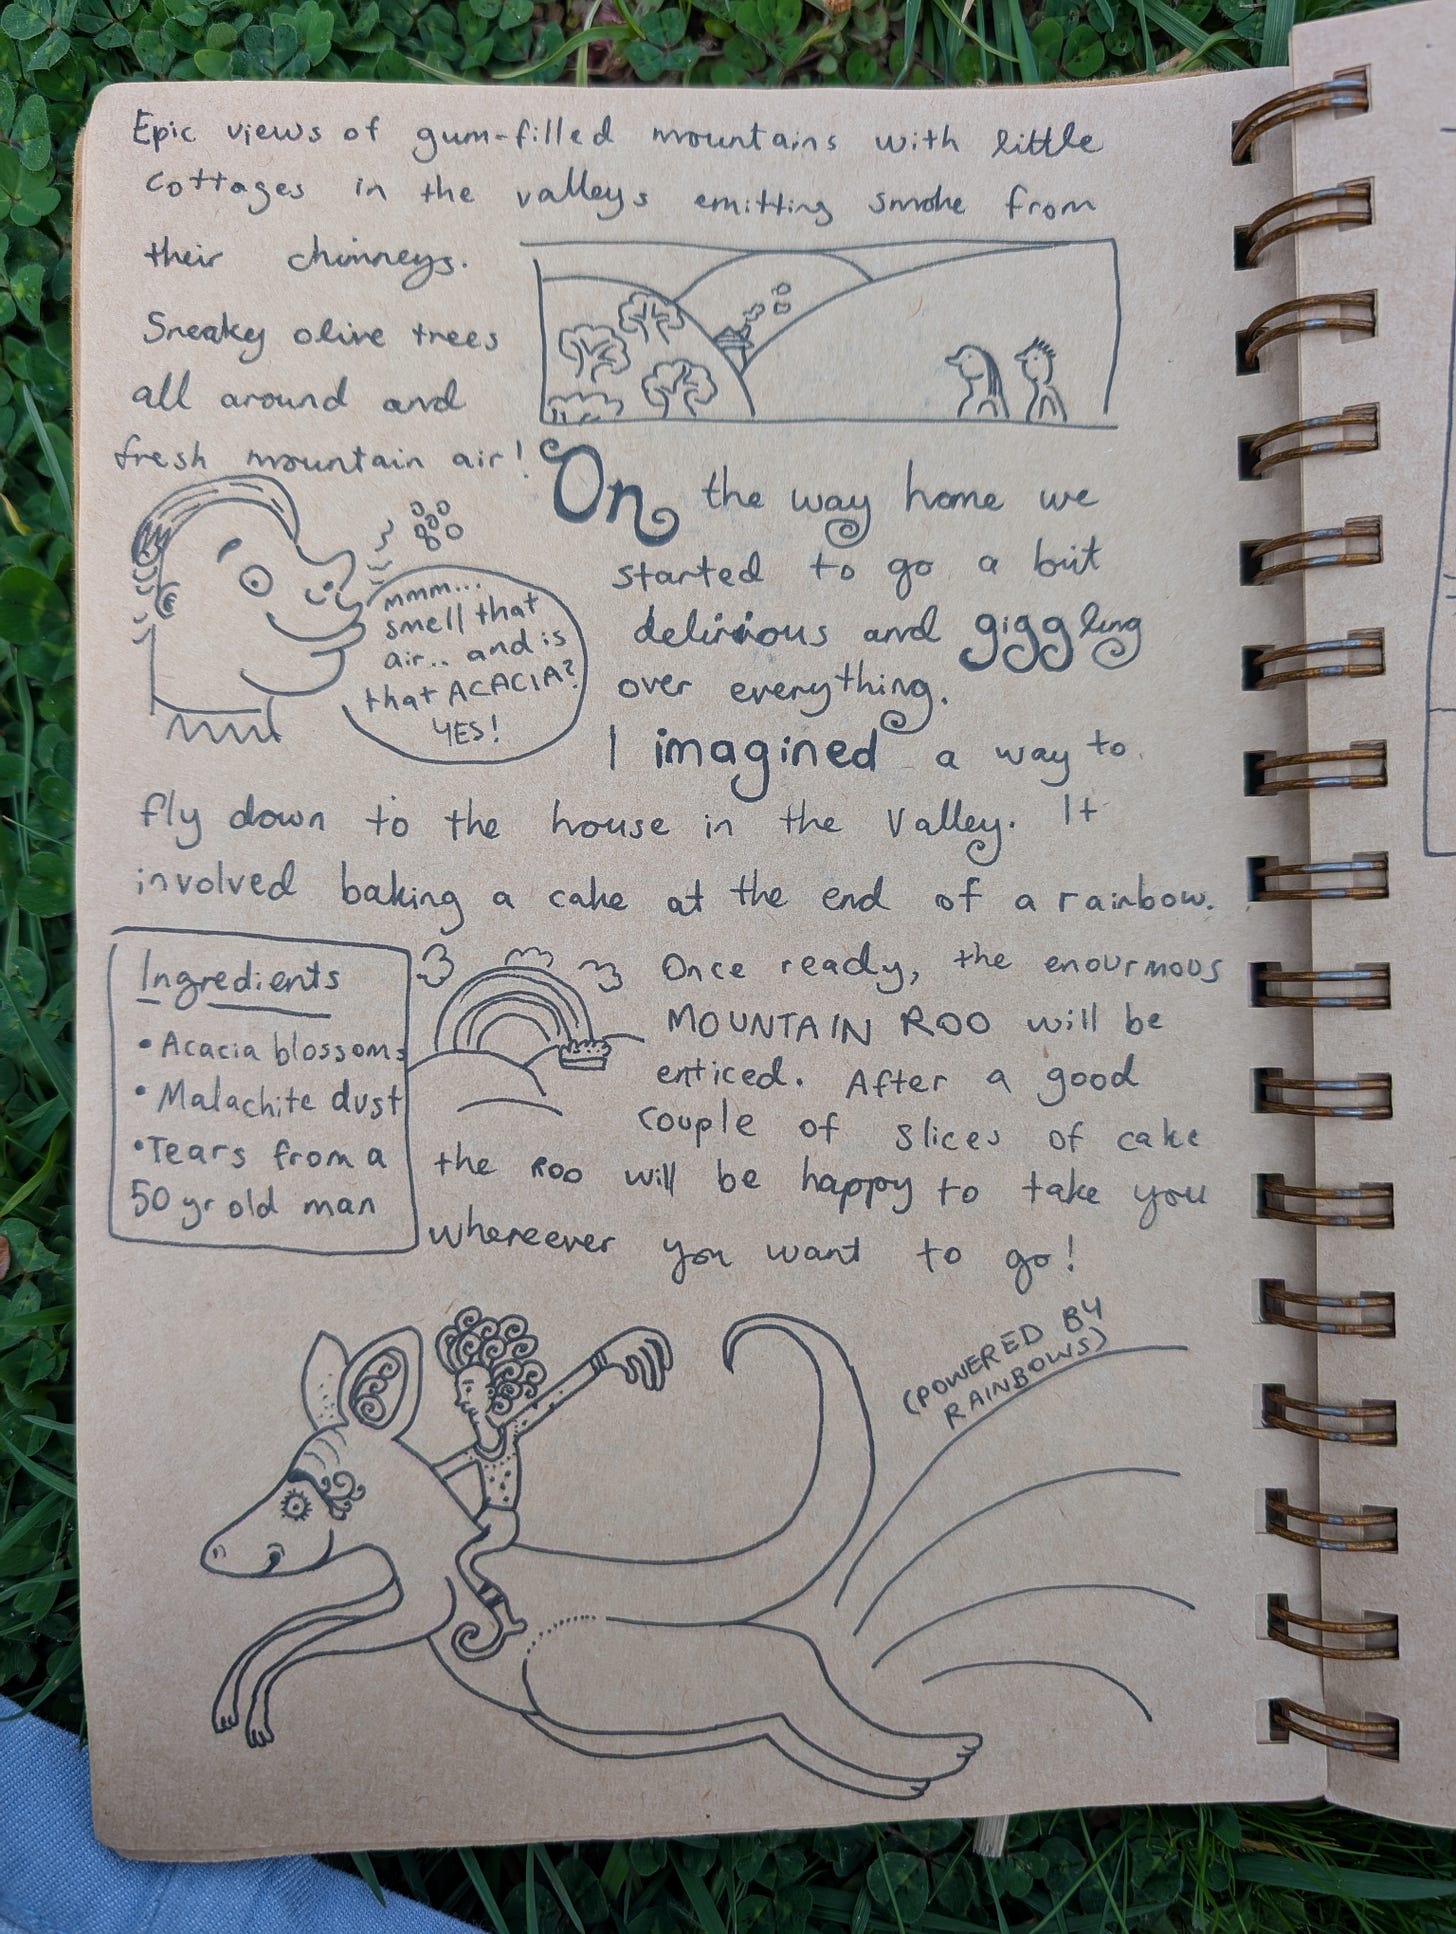 Epic views of gum-filled mountains with little
cottages in the valleys emitting smoke from
their chimneys.
Sneaky olive trees
all around and
fresh mountain air!
mmm...
smell that
air.. and is
that ACACIA?
YES!
On the way home we
started to go a bit
delirious and giggling
over everything.
I imagined a way to
fly down to the house in the valley. It
involved baking a cake at the end of a rainbow.
Ingredients
• Acacia blossoms
• Malachite dust
• Tears from a
50 yr old man
Once ready, the enourmous
MOUNTAIN ROO will be
enticed. After a good
couple of slices of cake
the ROO will be happy to take you
whereever you want to go!
(POWERED BY
RAINBOWS)